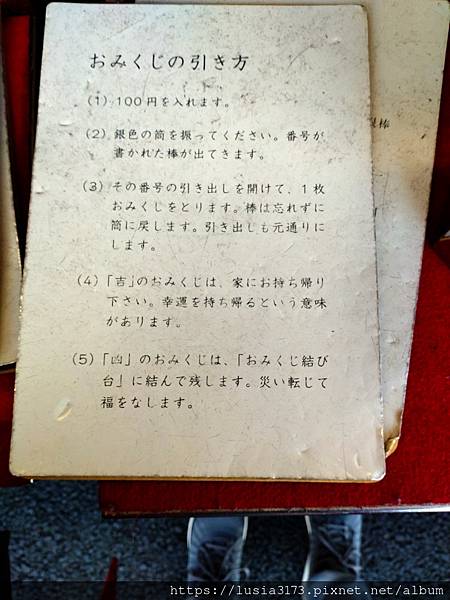 おみくじの引き方
(1) 100円を入れます。
(2) 銀色の筒を振ってください。番号が
書かれた棒が出てきます。
(3) その番号の引き出しを開けて、1枚
おみくじをとります。棒は忘れずに
筒に戻します。引き出しも元通りに
します。
(4)「吉」のおみくじは、家にお持ち帰り
下さい。幸運を持ち帰るという意味
があります。
(5)「凶」のおみくじは、「おみくじ結び
台」に結んで残します。災い転じて
福をなします。
棒
https://lusia3173.pixnet.net/album